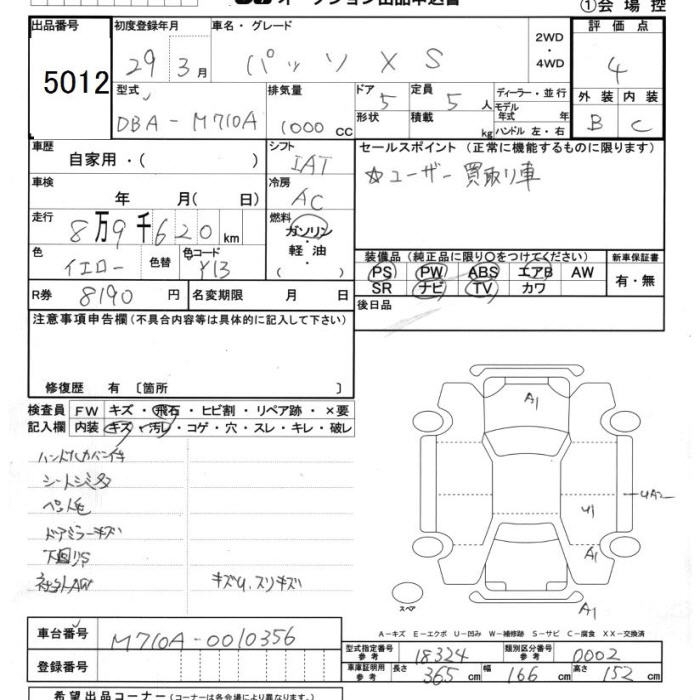 オークション出品申込書
①会場控
出品番号 5012
初度登録年月 29 3月
車名・グレード パッソ X S
2WD・4WD
評価点 4
型式 DBA-M710A
排気量 1000 CC
ドア 5
形状
定員 5人
積載 kg
ディーラー・並行
モデル年式 年
ハンドル 左・右
外装 内装
B C
車歴 自家用・( )
シフト IAT
セールスポイント (正常に機能するものに限ります)
☆ユーザー買取り車
車検 年 月(日)
冷房 AC
走行 8万9千620km
燃料 ガソリン・軽油( )
色 イエロー 色替 色コード Y13
装備品(純正品に限り○をつけてください)
新車保証書
PS PW ABS エアB AW
有・無
SR ナビ TV カワ
R券 8190円 名変期限 月 日
後日品
注意事項申告欄(不具合内容等は具体的に記入して下さい)
修復歴 有〔箇所 〕
検査員記入欄
FW キズ・飛石・ヒビ割・リペア跡・×要
内装 キズ・汚レ・コゲ・穴・スレ・キレ・破レ
シートシミ多
ドアミラーキズ
下回りS
キズU、スリキズ
A1
UA2
U1
A1
A1
スペア
A-キズ E-エクボ U-凹み W-補修跡 S-サビ C-腐食 XX-交換済
車台番号 M710A-0010356
登録番号
型式指定番号参考 18324 類別区分番号参考 0002
車庫証明用参考 長さ 365cm 幅 166cm 高さ 152cm
希望出品コーナー(コーナーは各会場により異なります。)